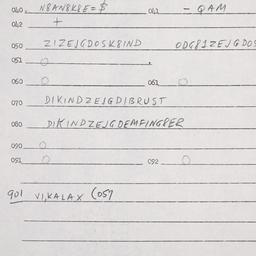 040 N8AN8K8E=$ 041 - QAM
042 +
050 ZIZEJGDOSK8IND ODG81ZEJGDOS
051 O
060 O 061 O
070 DIKINDZEJGDIBRUST
080 DIKINDZEJGDEMFINGRER
090 O
091 O 092 O
901 VI,KALAX (059